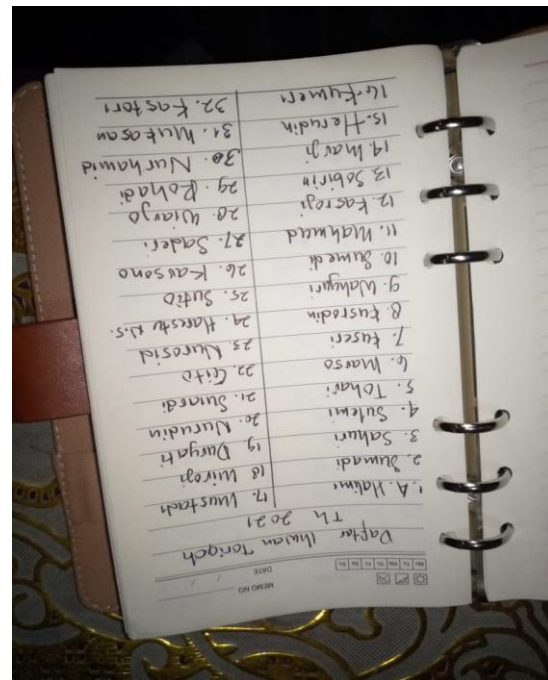 MEMO NO
DATE / /
Mo Tu We Th Fr Sa Su
Daftar Ihwan Toriqoh
Th 2021
1. A. Halimi
2. Sumadi
3. Sahuri
4. Sulemi
5. Tohari
6. Warso
7. Kaseri
8. Kusrodin
9. Wahyuri
10. Sumedi
11. Mahmud
12. Kasroji
13. Sobirin
14. Marji
15. Herudin
16. Kumeri
17. Mustach
18 Wiroji
19. Duryati
20. Nurudin
21. Sunardi
22. Cito
23 Nurosid
24. Haresty N.S.
25. Sutio
26. Karsono
27. Saderi
28. Wiarjo
29. Rohadi
30. Nurhamid
31. Mukasan
32. Kastori